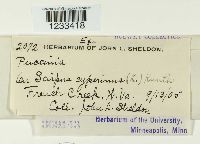 1233418
2972 HERBARIUM OF JOHN L. SHELDON.
Puccinia
on Scirpus cyperinus (L.) Kunth
French Creek, W. Va. 9/12/05
Coll. John L. Sheldon
Herbarium of the University,
Minneapolis, Minn